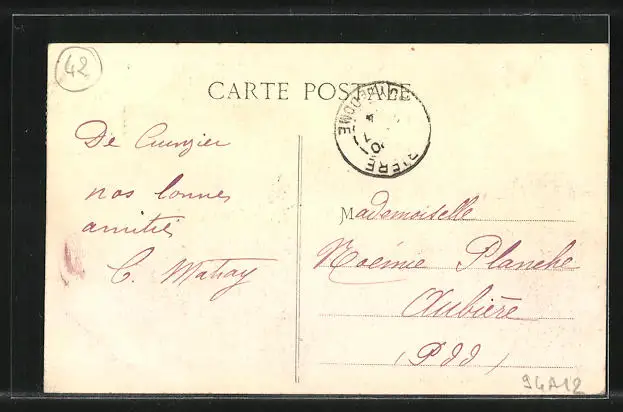 42
CARTE POSTALE
PUY-DE-DÔME
BIERE
De Cunzier
nos bonnes
amitiés
C. Mahay
Mademoiselle
Noémie Planche
Aubière
(P dd)
94A12